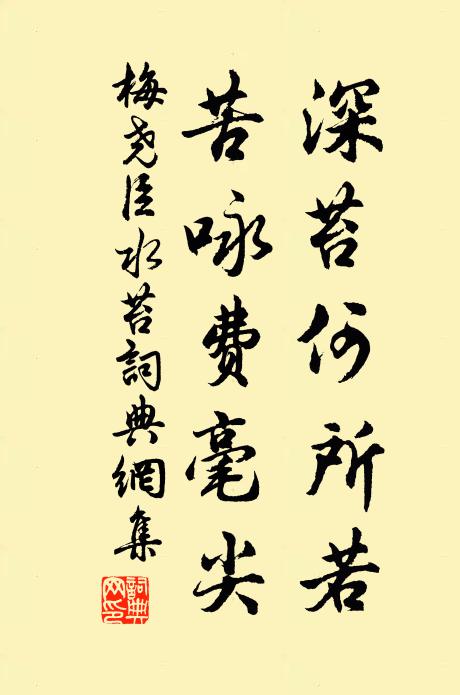 深苔何所若
苦咏費毫尖
梅堯臣水苔詞典網集
詞典網印